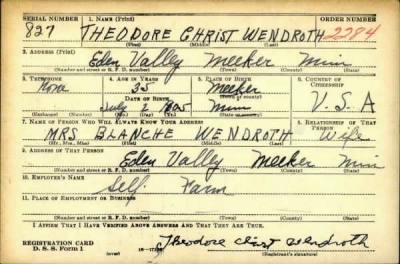 SERIAL NUMBER 1. NAME (Print) ORDER NUMBER
827 THEODORE CHRIST WENDROTH 2284
(First) (Middle) (Last)
2. ADDRESS (Print)
Eden Valley Meeker Minn
(Number and street or R. F. D. number) (Town) (County) (State)
3. TELEPHONE 4. AGE IN YEARS 5. PLACE OF BIRTH 6. COUNTRY OF CITIZENSHIP
None 35 Meeker
DATE OF BIRTH (Town or county)
July 2 1905 Minn U. S. A
(Exchange) (Number) (Mo.) (Day) (Yr.) (State or country)
7. NAME OF PERSON WHO WILL ALWAYS KNOW YOUR ADDRESS 8. RELATIONSHIP OF THAT PERSON
MRS BLANCHE WENDROTH Wife
(Mr., Mrs., Miss) (First) (Middle) (Last)
9. ADDRESS OF THAT PERSON
Eden Valley Meeker Minn
(Number and street or R. F. D. number) (Town) (County) (State)
10. EMPLOYER'S NAME
Self Farm
11. PLACE OF EMPLOYMENT OR BUSINESS
(Number and street or R. F. D. number) (Town) (County) (State)
I AFFIRM THAT I HAVE VERIFIED ABOVE ANSWERS AND THAT THEY ARE TRUE.
REGISTRATION CARD
D. S. S. Form 1 (over) Theodore Christ Wendroth
(Registrant's signature)